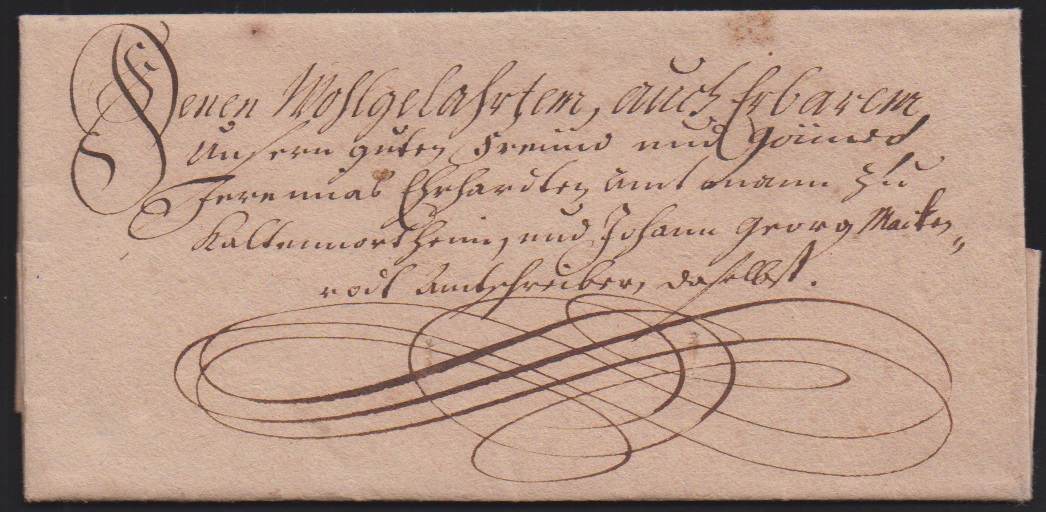 Denen Wohlgelahrtem, auch Erbarem
Unsern guten Freund und Gönner
Jeremias Ehrhardten Amtmann zu
Kaltennortheim, und Johann Georg Macken„
rodt Amtschreiber, daselbst.